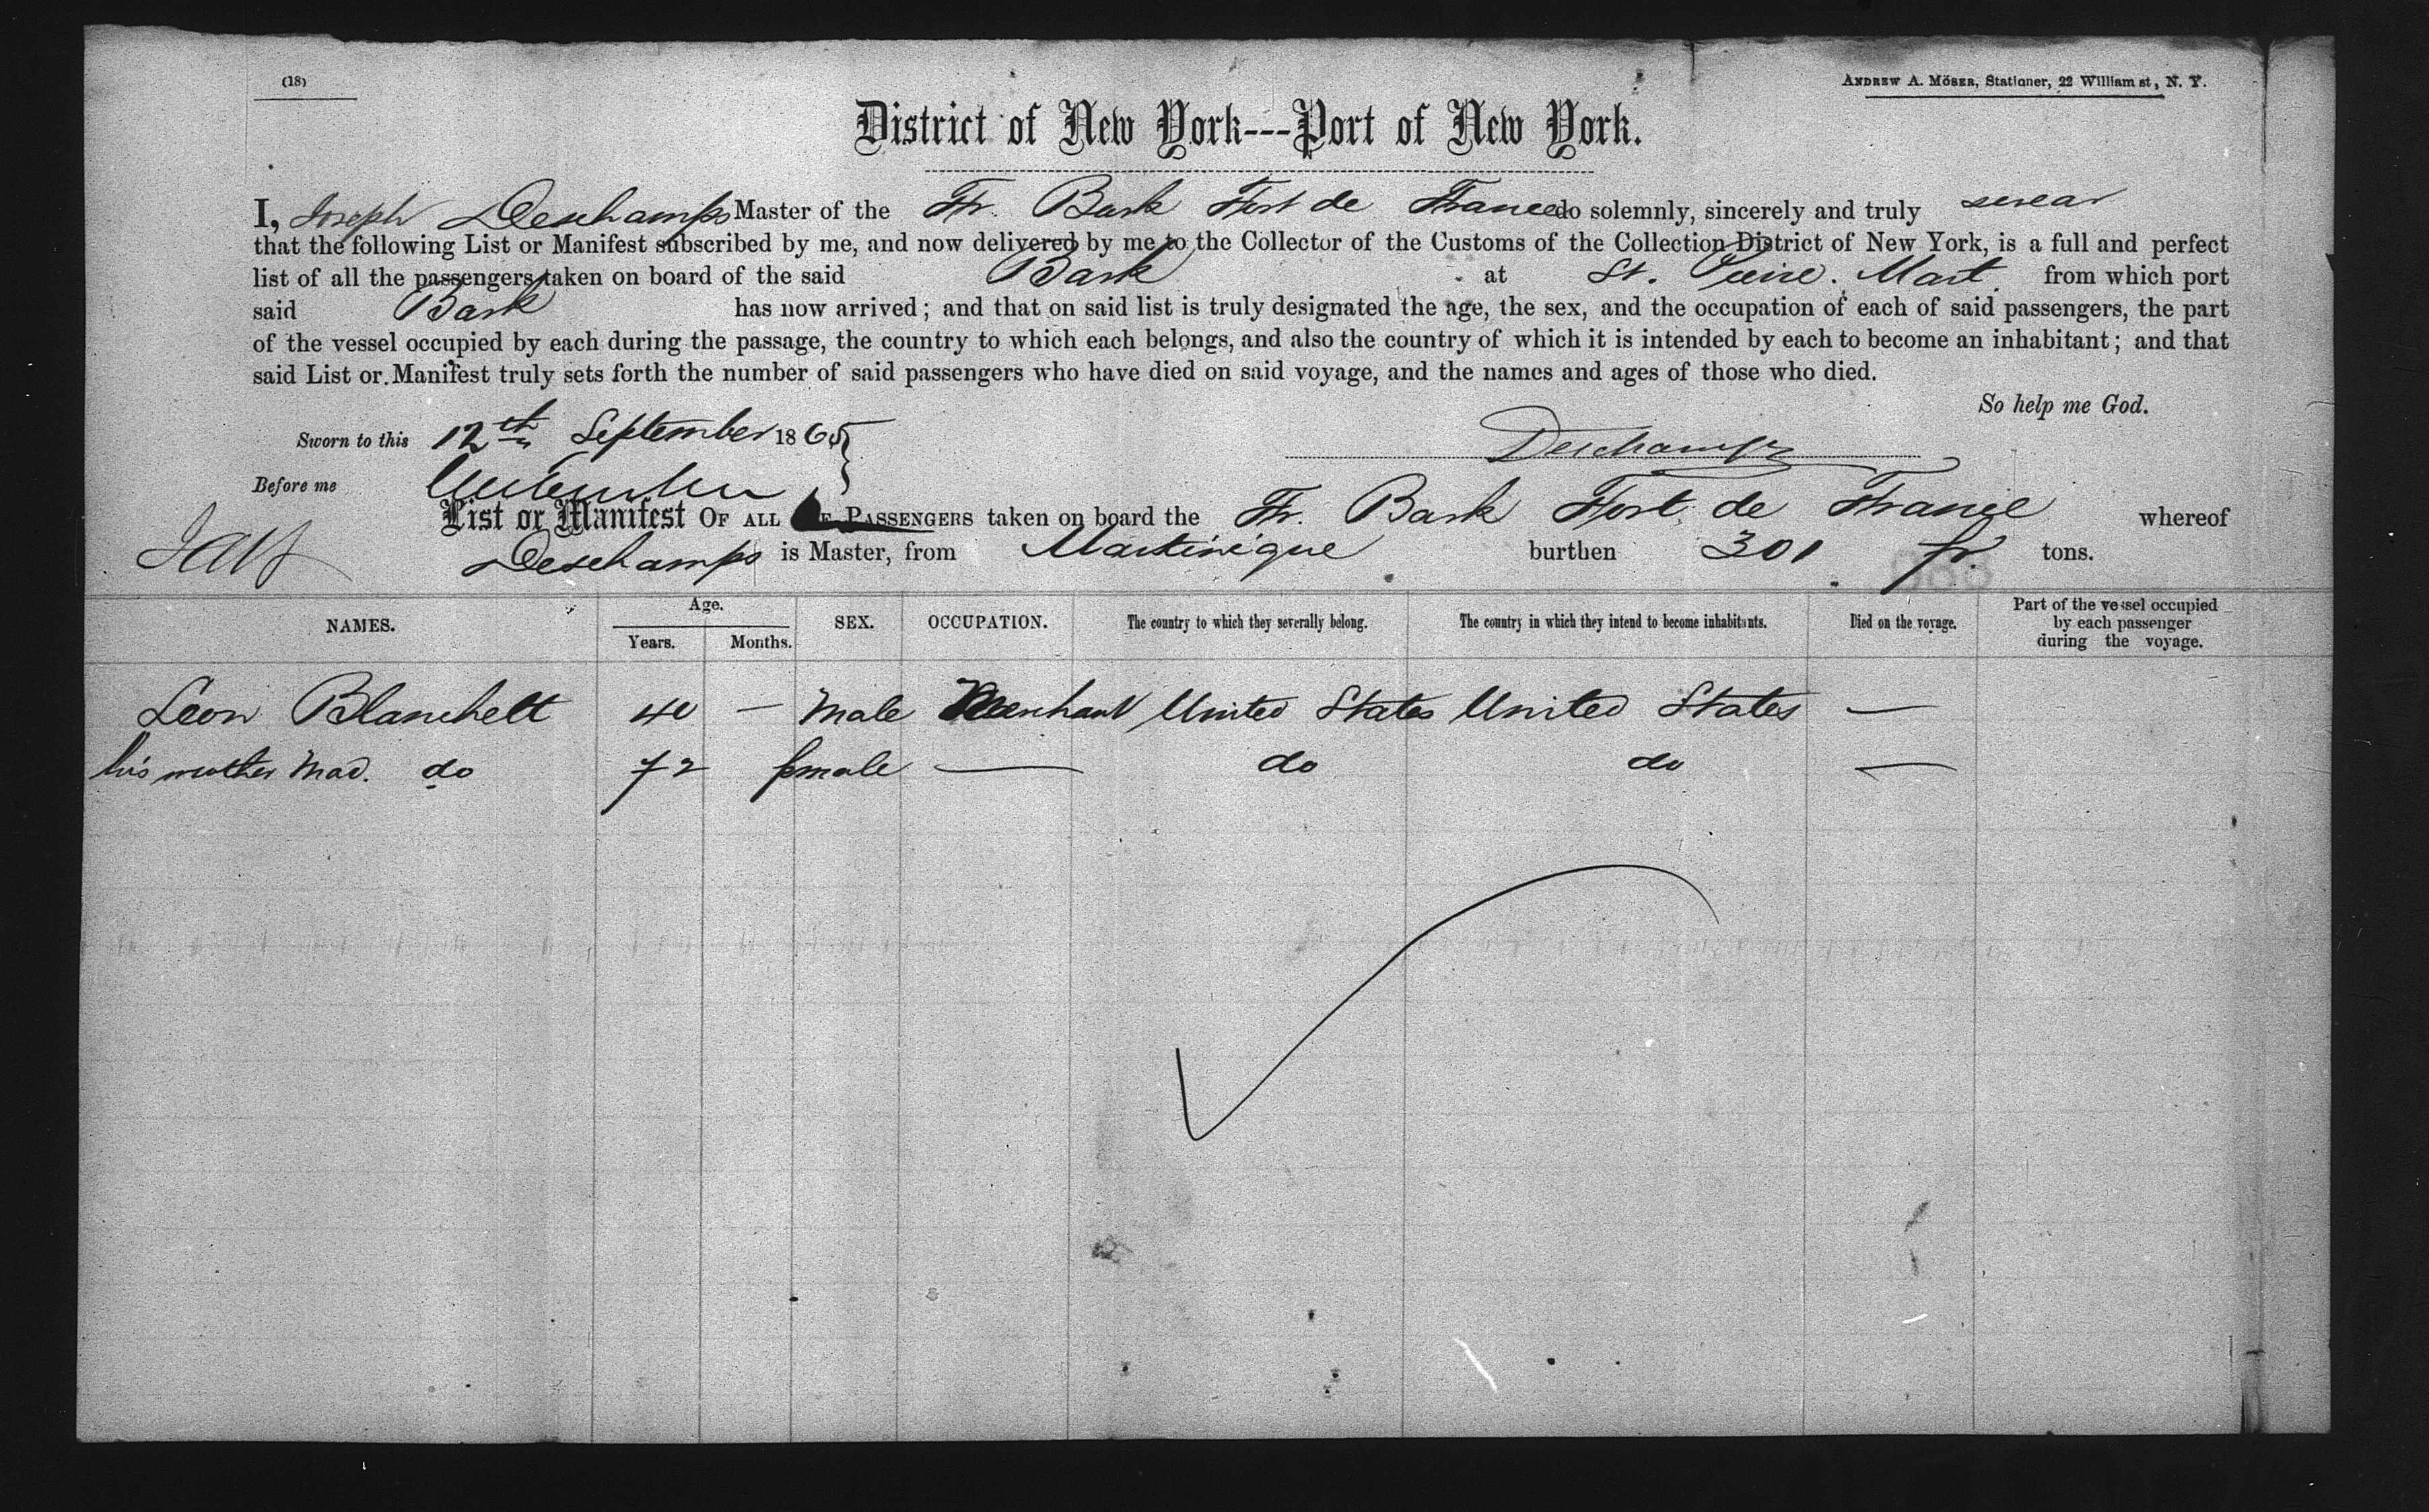 (18)
ANDREW A. MÖSER, Stationer, 22 William st, N. Y.
District of New York---Port of New York.
I, Joseph Deschamps Master of the Fr. Bark Fort de France do solemnly, sincerely and truly swear
that the following List or Manifest subscribed by me, and now delivered by me to the Collector of the Customs of the Collection District of New York, is a full and perfect
list of all the passengers taken on board of the said Bark at St. Pierre. Mart. from which port
said Bark has now arrived; and that on said list is truly designated the age, the sex, and the occupation of each of said passengers, the part
of the vessel occupied by each during the passage, the country to which each belongs, and also the country of which it is intended by each to become an inhabitant; and that
said List or Manifest truly sets forth the number of said passengers who have died on said voyage, and the names and ages of those who died.
So help me God.
Sworn to this 12th September 1865
Deschamps
Before me
List or Manifest OF ALL THE PASSENGERS taken on board the Fr. Bark Fort de France whereof
Deschamps is Master, from Martinique burthen 301 fr. tons.
NAMES. Age. Years. Months. SEX. OCCUPATION. The country to which they severally belong. The country in which they intend to become inhabitants. Died on the voyage. Part of the vessel occupied by each passenger during the voyage.
Leon Blanchett 40 — Male Merchant United States United States —
his mother Mad. do 72 female — do do —